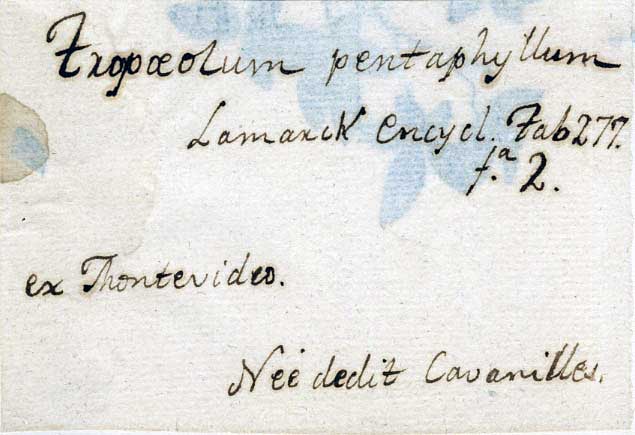 Tropœolum pentaphyllum
Lamarck encycl. Tab 277.
f.ª 2.
ex Montevideo.
Neé dedit Cavanilles.